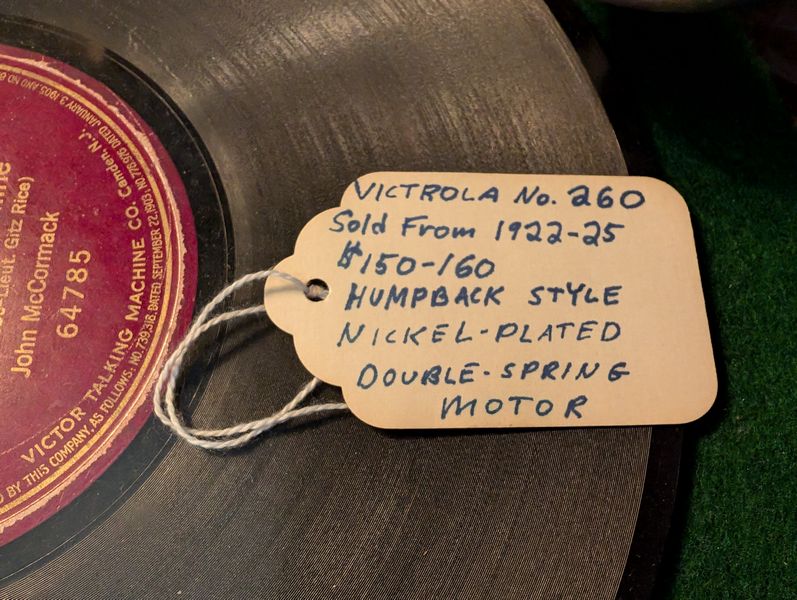 VICTROLA No. 260
Sold From 1922-25
$150-160
HUMPBACK STYLE
NICKEL-PLATED
DOUBLE-SPRING
MOTOR
Lieut. Gitz Rice)
John McCormack
64785
VICTOR TALKING MACHINE CO. Camden, N.J.
BY THIS COMPANY, AS FOLLOWS: NO. 739,318, DATED SEPTEMBER 22, 1903, NO. 778,976 DATED JANUARY 3 1905, AND NO